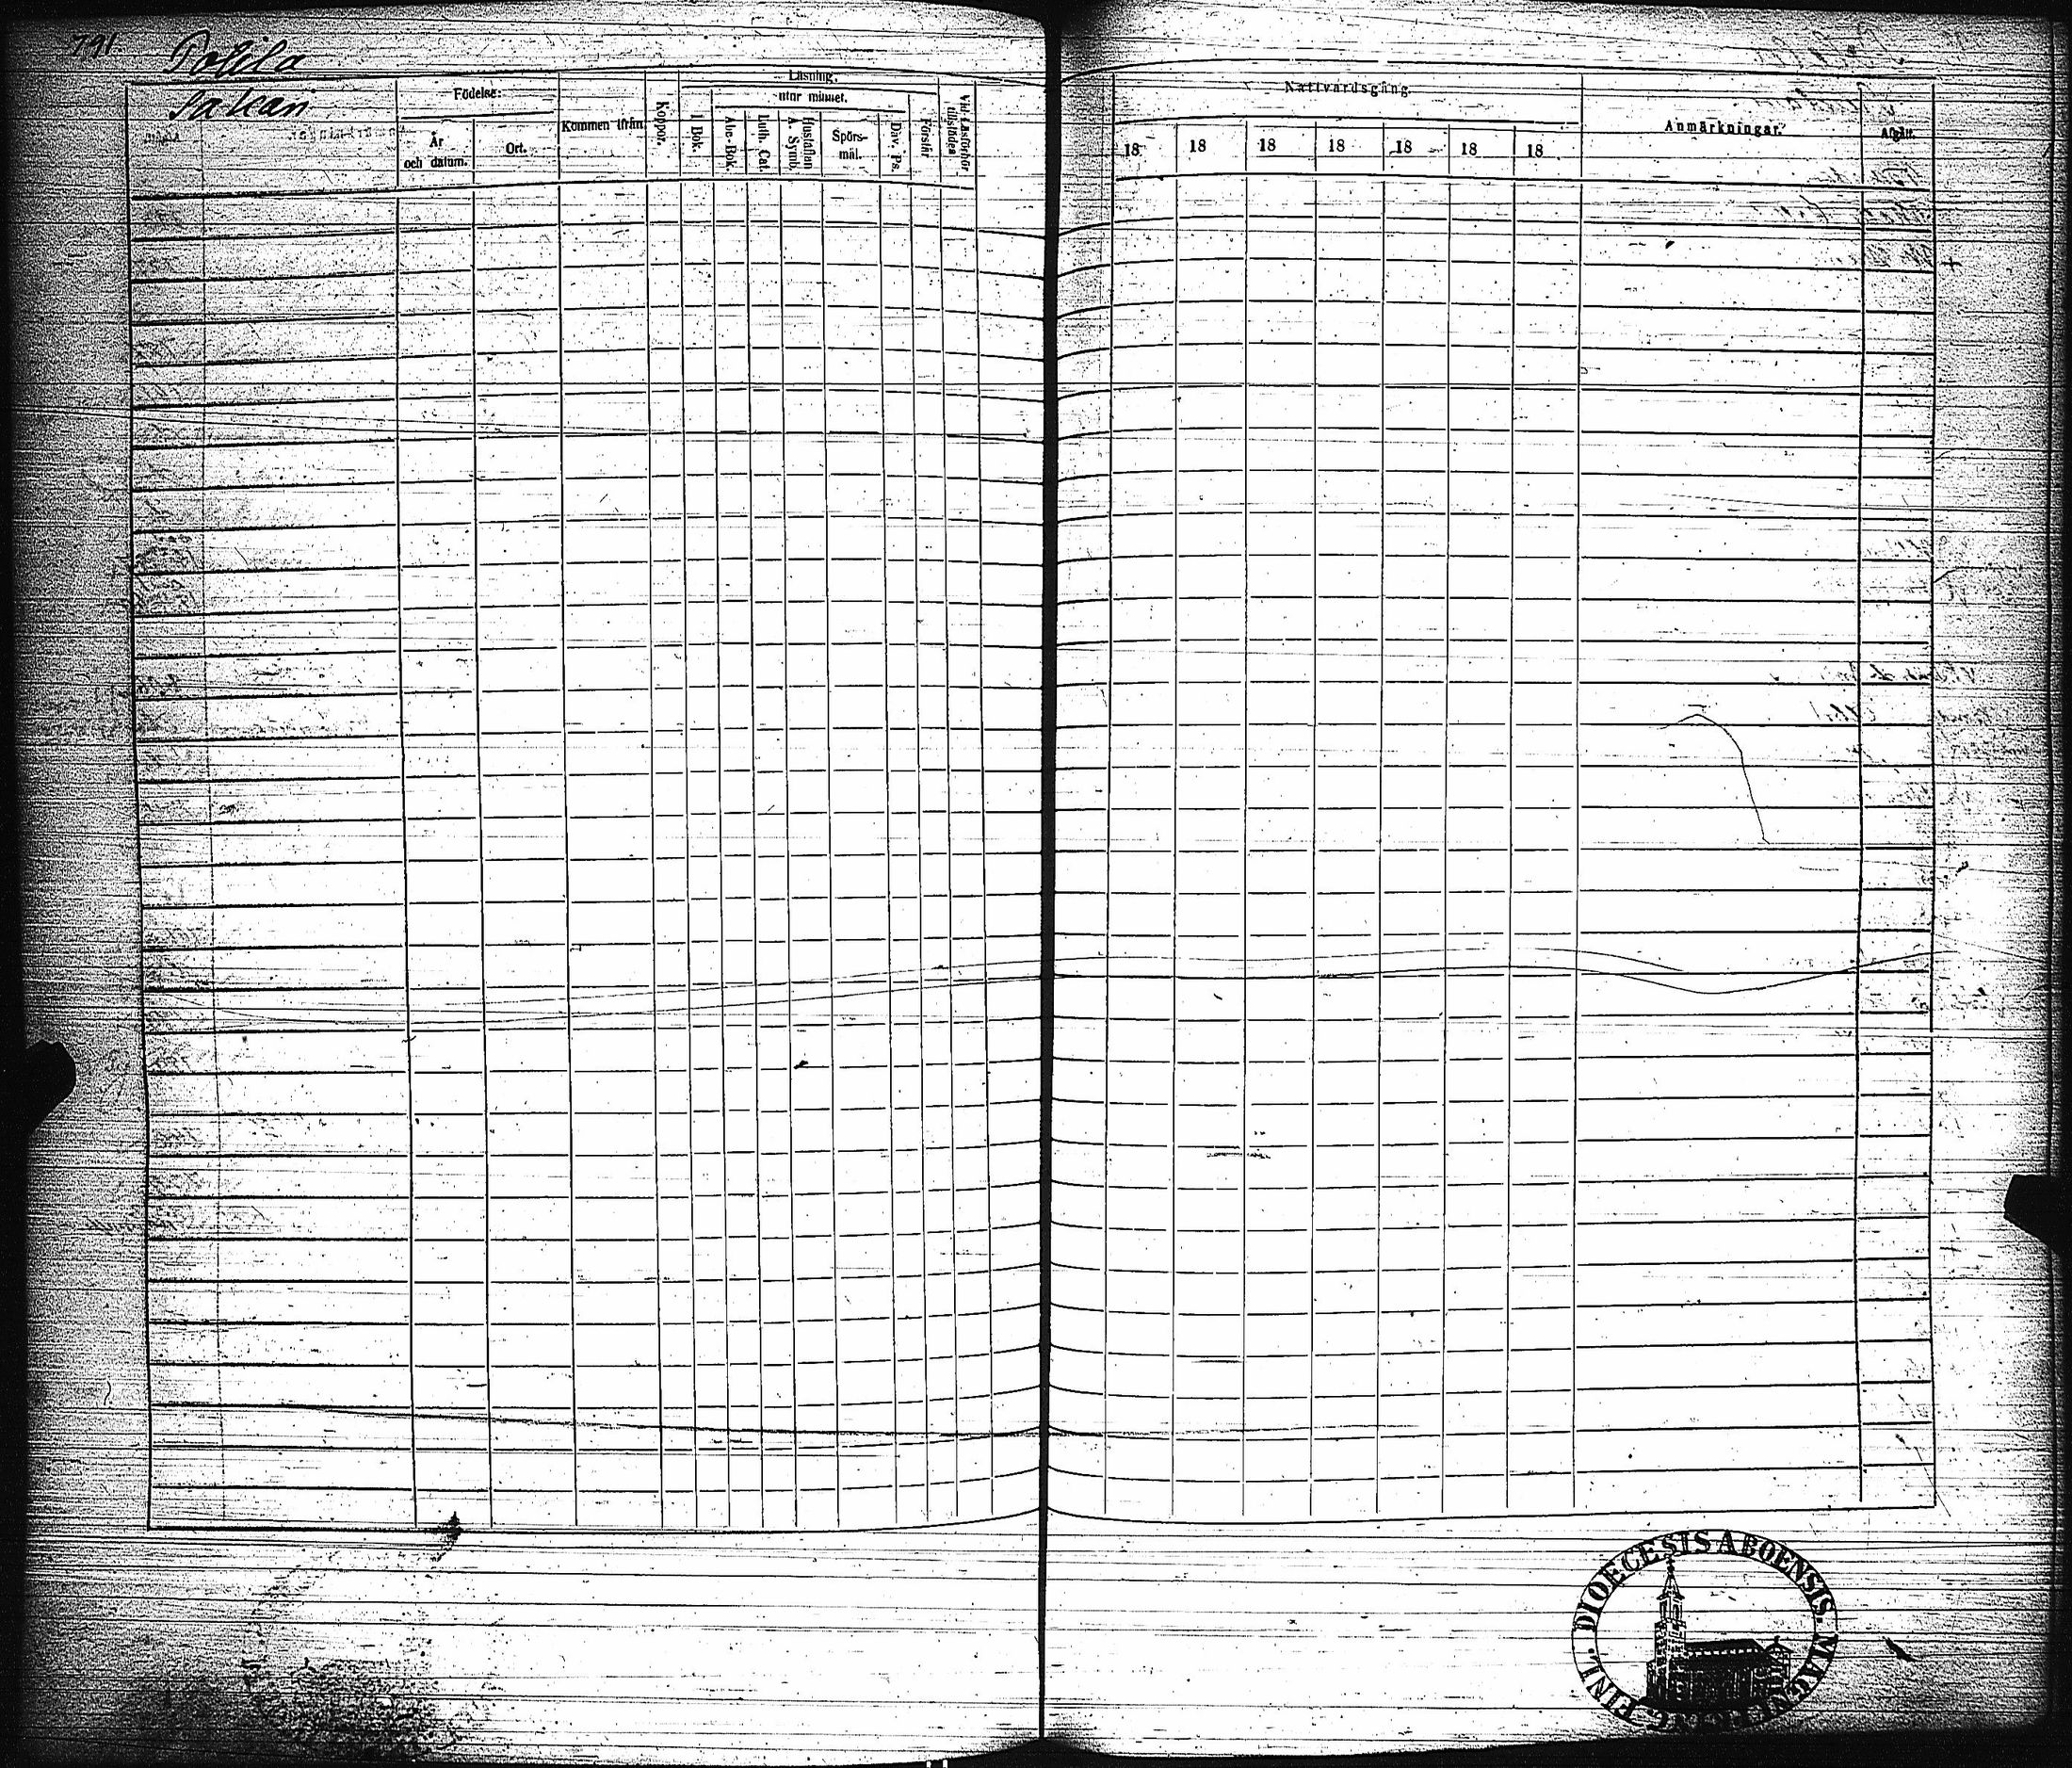 791.
Födelse:
År
och datum.
Ort.
Kommen ifrån
Koppor.
Läsning.
I Bok.
utur minnet.
Abc-Bok.
Luth. Cat.
Hustaflan
A. Symb.
Spörs-
mål.
Div. Ps.
Förstår
Vid Läsförhör
tillstädes
Nattvardsgång
18 18 18 18 18 18 18
Anmärkningar.
Afgått.
DIOECESIS ABOENSIS. MAGNI FINL.